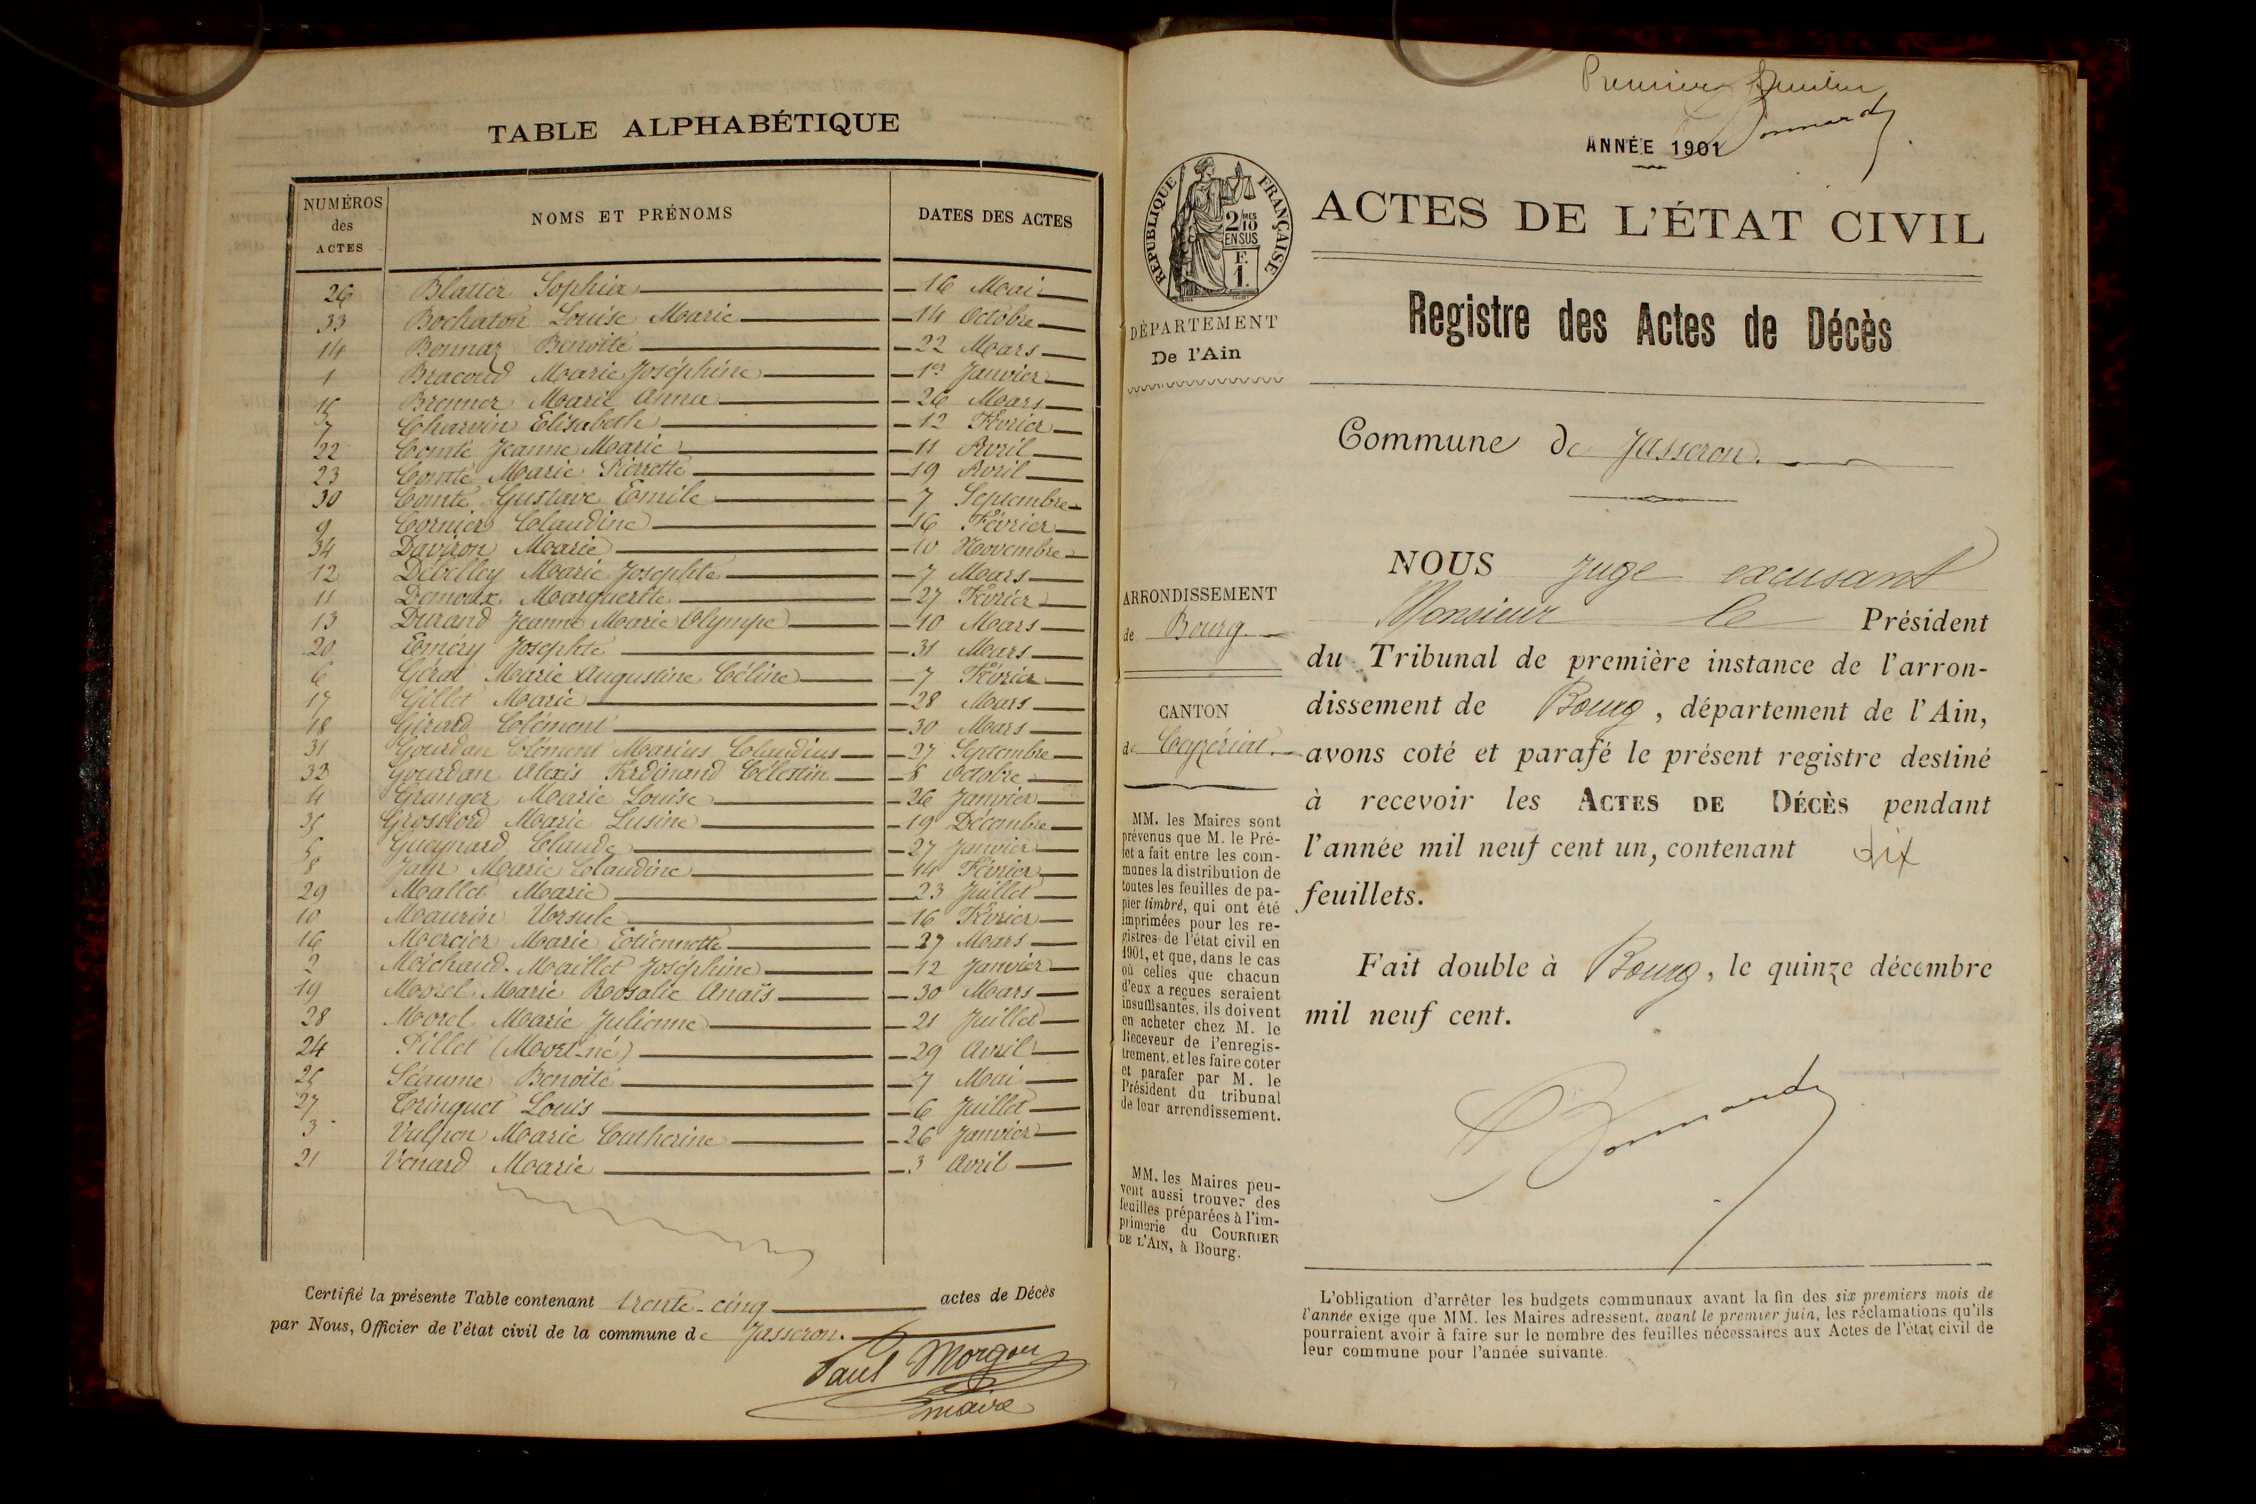 TABLE ALPHABÉTIQUE
NUMÉROS des ACTES
NOMS ET PRÉNOMS
DATES DES ACTES
26 Blatter Sophia 16 Mai
33 Bochaton Louise Marie 14 Octobre
14 Bonnaz Benoîte 22 Mars
1 Bracoud Marie Joséphine 1er Janvier
15 Brenner Marie Anna 26 Mars
7 Charvin Elisabeth 12 Février
22 Comte Jeanne Marie 11 Avril
23 Comte Marie Pierrette 19 Avril
30 Comte Gustave Emile 7 Septembre
9 Cornier Claudine 16 Février
34 Daviron Marie 10 Novembre
12 Debelley Marie Josephte 7 Mars
11 Demoux Marguerite 27 Février
13 Durand Jeanne Marie Olympe 10 Mars
20 Eméry Josephte 31 Mars
6 Marie Augustine Céline 7 Février
17 Gillet Marie 28 Mars
18 Girard Clément 30 Mars
31 Gourdan Clément Marius Claudius 27 Septembre
32 Gourdan Alexis Ferdinand Célestin 8 Octobre
4 Granger Marie Louise 26 Janvier
35 Grossiord Marie Lusine 19 Décembre
5 Guagnard Claude 27 Janvier
8 Marie Claudine 14 Février
29 Mallet Marie 23 Juillet
10 Maurin Ursule 16 Février
16 Mercier Marie Etiennette 27 Mars
2 Michaud-Maillet Joséphine 12 Janvier
19 Morel Marie Rosalie Anaïs 30 Mars
28 Morel Marie Julienne 21 Juillet
24 Pillet (Mort-né) 29 Avril
25 Séaume Benoîte 7 Mai
27 Tringuet Louis 6 Juillet
3 Vulpon Marie Catherine 26 Janvier
21 Venard Marie 3 Avril
Certifié la présente Table contenant trente-cinq actes de Décès
par Nous, Officier de l'état civil de la commune de Jasseron.
Paul Morgon
maire
Premier
Bonnardy
ANNÉE 1901
RÉPUBLIQUE FRANÇAISE
2/10 EN SUS
F. 1.
ACTES DE L'ÉTAT CIVIL
DÉPARTEMENT
De l'Ain
Registre des Actes de Décès
Commune de Jasseron
ARRONDISSEMENT
de Bourg
CANTON
de Ceyzériat
MM. les Maires sont
prévenus que M. le Pré-
fet a fait entre les com-
munes la distribution de
toutes les feuilles de pa-
pier timbré, qui ont été
imprimées pour les re-
gistres de l'état civil en
1901, et que, dans le cas
où celles que chacun
d'eux a reçues seraient
insuffisantes, ils doivent
en acheter chez M. le
Receveur de l'enregis-
trement, et les faire coter
et parafer par M. le
Président du tribunal
de leur arrondissement.
MM. les Maires peu-
vent aussi trouver des
feuilles préparées à l'im-
primerie du COURRIER
DE L'AIN, à Bourg.
NOUS Juge excusant
Monsieur le Président
du Tribunal de première instance de l'arron-
dissement de Bourg, département de l'Ain,
avons coté et parafé le présent registre destiné
à recevoir les ACTES DE DÉCÈS pendant
l'année mil neuf cent un, contenant dix
feuillets.
Fait double à Bourg, le quinze décembre
mil neuf cent.
Bonnardy
L'obligation d'arrêter les budgets communaux avant la fin des six premiers mois de
l'année exige que MM. les Maires adressent, avant le premier juin, les réclamations qu'ils
pourraient avoir à faire sur le nombre des feuilles nécessaires aux Actes de l'état civil de
leur commune pour l'année suivante.